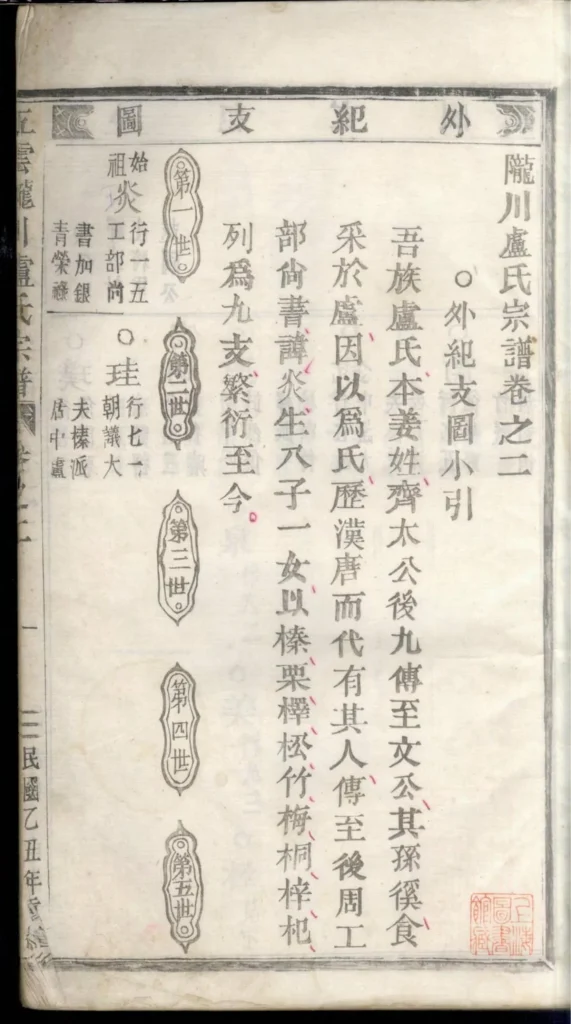 外紀支圖
隴川盧氏宗譜卷之二
○外紀支圖小引
吾族盧氏本姜姓齊太公後九傳至文公其孫傒食
采於盧因以爲氏歷漢唐而代有其人傳至後周工
部尙書諱炎生八子一女以榛栗檡松竹梅桐梓杞
列爲九支繁衍至今
第一世
第二世
第三世
第四世
第五世
始祖炎
行一五
工部尙
書加銀
青榮祿
○珪
行七一
朝議大
夫榛派
居中盧
五雲隴川盧氏宗譜
卷之二
一
民國乙丑年重修
上海圖書館藏